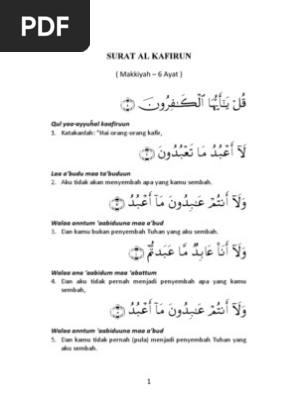 PDF
SURAT AL KAFIRUN
( Makkiyah – 6 Ayat )
قُلْ يَـٰٓأَيُّهَا ٱلْكَـٰفِرُونَ ﴿١﴾
Qul yaa-ayyuhal kaafiruun
1. Katakanlah: "Hai orang-orang kafir,
لَآ أَعْبُدُ مَا تَعْبُدُونَ ﴿٢﴾
Laa a'budu maa ta'buduun
2. Aku tidak akan menyembah apa yang kamu sembah.
وَلَآ أَنتُمْ عَـٰبِدُونَ مَآ أَعْبُدُ ﴿٣﴾
Walaa anntum 'aabiduuna maa a'bud
3. Dan kamu bukan penyembah Tuhan yang aku sembah.
وَلَآ أَنَا۠ عَابِدٌ مَّا عَبَدتُّمْ ﴿٤﴾
Walaa ana 'aabidum maa 'abattum
4. Dan aku tidak pernah menjadi penyembah apa yang kamu
sembah,
وَلَآ أَنتُمْ عَـٰبِدُونَ مَآ أَعْبُدُ ﴿٥﴾
Walaa anntum 'aabiduuna maa a'bud
5. Dan kamu tidak pernah (pula) menjadi penyembah Tuhan yang
aku sembah.
1